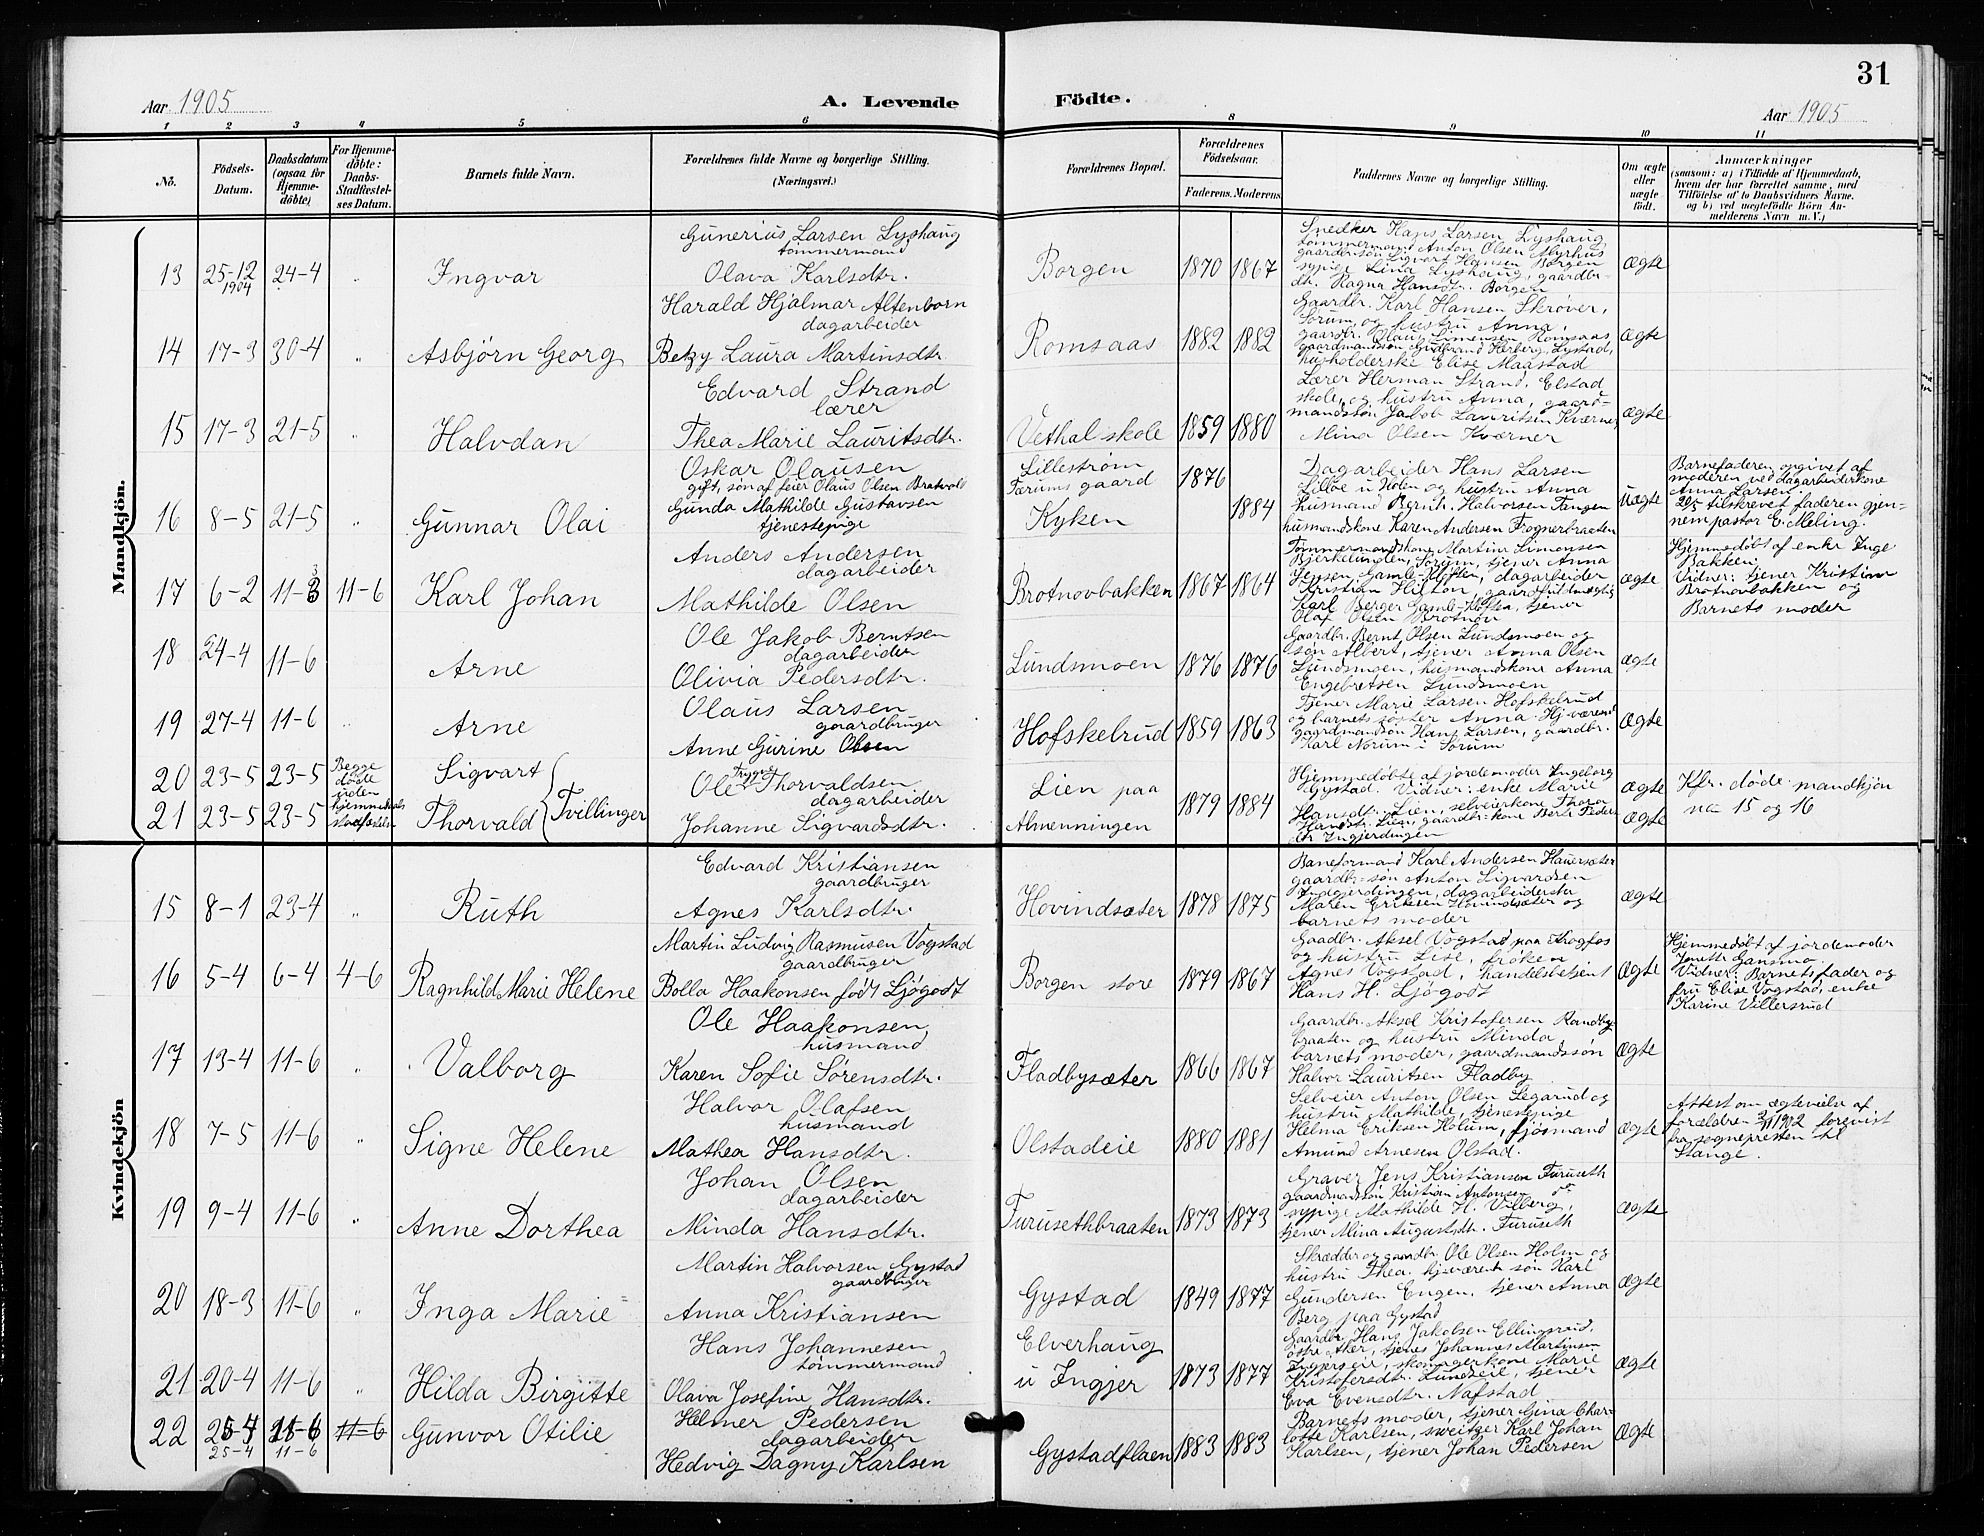 31
Aar 1905 A. Levende Födte. Aar 1905
1 2 3 4 5 6 8 9 10 11
No. Födsels-Datum. Daabsdatum (ogsaa for Hjemmedöbte) For Hjemmedöbte: Daabs-Stadfæstelses Datum. Barnets fulde Navn. Forældrenes fulde Navne og borgerlige Stilling. (Næringsvei.) Forældrenes Bopæl. Forældrenes Födselsaar. Faderens. Moderens. Faddernes Navne og borgerlige Stilling. Om ægte eller uægte födt. Anmærkninger (saasom: a) i Tilfælde af Hjemmedaab, hvem der har forrettet samme, med Tilföielse af to Daabsvidners Navne. og b) ved uægtefödte Börn Anmelderens Navn m. V.)
Mandkjön.
13 25-12 1904 24-4 " Ingvar
Gunerius Larsen Lyshaug
tømmermand
Olava Karlsdtr.
Borgen 1870 1867
Snedker Hans Larsen Lyshaug,
tømmermand Anton Olsen Myrhus
gaardm.søn Sigvart Hansen Borgen
sypige Lina Lyshaug, gaardbr-
dtr. Ragna Hansdtr. Borgen
ægte
14 17-3 30-4 " Asbjørn Georg
Harald Hjalmar Altenborn
dagarbeider
Betzy Laura Martinsdtr.
Romsaas 1882 1882
Gaardbr. Karl Hansen Skrøver,
Sørum og hustru Anna,
gaardbr. Olaus Simensen Romsaas,
gaardmandssøn Gudbrand Herberg Lystad,
husholderske Elise Maastad
ægte
15 17-3 21-5 " Halvdan
Edvard Strand
lærer
Thea Marie Lauritsdtr.
Vethal skole 1859 1880
Lærer Herman Strand, Elstad
skole, og hustru Anna, gaard-
mandssøn Jakob Lauritsen Kværner,
Mina Olsen Kværner
ægte
16 8-5 21-5 " Gunnar Olai
Oskar Olausen
gift, søn af feier Olaus Olsen Bratvold
Gunda Mathilde Gustavsen
tjenestepige
Lillestrøm
Færums gaard 1876
Kyken 1884
Dagarbeider Hans Larsen
Lilloe u Holen og hustru Anna
husmand Bernh. Halvorsen Tangen
husmandskone Karen Andersen Frognerbraaten
uægte
Barnefaderen opgivet af
moderen ved dagarbeiderkone
Anna Larsen.
29/5 tilskrevet faderen gjen-
nem pastor E. Meling.
17 6-2 11-3 11-6 Karl Johan
Anders Andersen
dagarbeider
Mathilde Olsen
Brotnovbakken 1867 1864
Tømmermandskone Martine Simonsen
Bjerkelunden, Sørum, tjener Anna
Jensen Gamle-Hoften, dagarbeider
Kristian Hilton, gaardsfuldmægtig
Karl Berger Gamle-Hofta, tjener
Olaf Olsen Brotnov
ægte
Hjemmedøbt af enke Inge
Bakken
Vidner: tjener Kristine
Brotnovbakken og
Barnets moder
18 24-4 11-6 Arne
Ole Jakob Berntsen
dagarbeider
Olivia Pedersdtr.
Lundsmoen 1876 1876
Gaardbr. Bernt Olsen Lundsmoen og
søn Albert, tjener Anna Olsen
Lundsmoen, husmandskone Anna
Engebretsen Lundsmoen
ægte
19 27-4 11-6 " Arne
Olaus Larsen
gaardbruger
Anne Gurine Olsen
Hofskelrud 1859 1863
Tjener Marie Larsen Hofskelrud
og barnets søster Anna Hj.værend.
gaardmandssøn Hans Larsen, gaardbr.
Karl Norum i Sørum
ægte
20 23-5 23-5 Sigvart
21 23-5 23-5 Thorvald Tvillinger
Begge
døde
uden
hjemmedaabs
stadfæstelse
Ole Trygve Thorvaldsen
dagarbeider
Johanne Sigvardsdtr.
Lien paa
Almenningen 1879 1884
Hjemmedøbte af jordemoder Ingeborg
Gystad. Vidner: enke Marie
Hansdtr. Lien, selveierkone Thora
Hansdtr. Lien, gaardbr.kone Berte Peders
dtr Ingjerdingen
ægte
ægte
Kfr. døde mandkjøn
no 15 og 16
Kvindekjön
15 8-1 23-4 " Ruth
Edvard Kristiansen
gaardbruger
Agnes Karlsdtr.
Hovindsæter 1878 1875
Baneformand Karl Andersen Hauersæter
gaardbr.-søn Anton Sigvardsen
Ingjerdingen, dagarbeiderske
Maren Eriksen Hovindsæter og
barnets moder
ægte
16 5-4 6-4 4-6 Ragnhild Marie Helene
Martin Ludvig Rasmusen Vogstad
gaardbruger
Bolla Haakonsen født Ljøgodt
Borgen store 1879 1867
Gaadbr. Aksel Vogstad paa Krogfos
og hustru Lise, frøken
Agnes Vogstad, handelsbetjent
Hans H. Ljøgodt
ægte
Hjemmedøbt af jordemoder
Jonette Gansmo.
Vidner: Barnets fader og
fru Elise Vogstad, enke
Karine Villersrud
17 13-4 11-6 " Valborg
Ole Haakonsen,
husmand
Karen Sofie Sørensdtr.
Fladbysæter 1866 1867
Gaardbr. Aksel Kristofersen Randby-
braaten og hustru Minda
barnets moder, gaardmandssøn
Halvor Lauritsen Fladby
ægte
18 7-5 11-6 " Signe Helene
Halvor Olafsen
husmand
Mathea Hansdtr.
Olstadeie 1880 1881
Selveier Anton Olsen Segarud og
hustru Mathilde, tjenestepige
Helma Eriksen Holum, fjøsmand
Amund Arnesen Olstad.
ægte
Attest om ægtevielse af
forældren 2/11 1902 forevist
fra sognepresten til
Stange.
19 9-4 11-6 " Anne Dorthea
Johan Olsen
dagarbeider
Minda Hansdtr.
Furusethbraaten 1873 1873
Graver Jens Kristiansen Furuseth
gaardmandssøn Kristian Antonsen do
sypige Mathilde H. Vilberg,
tjener Mina Augustdtr. Furuseth
ægte
20 18-3 11-6 " Inga Marie
Martin Halvorsen Gystad
gaardbruger
Anna Kristiansen
Gystad 1849 1877
Skrædder og gaardbr. Ole Olsen Holm og
hustru Thea. hj.værend. søn Karl
Gundersen Engen, tjener Anna
Berg paa Gystad
ægte
21 20-4 11-6 " Hilda Birgitte
Hans Johannesen
tømmermand
Olava Josefine Hansdtr.
Elverhaug
u Ingjer 1873 1877
Gaardbr. Hans Jakobsen Ellingsrud,
østre Aker, tjener Johannes Martinsen
Ingjerseie, skomagerkone Marie
Kristofersdtr. Lundseie, tjener
Eva Evensdtr. Nafstad
ægte
22 25-4 11-6 11-6 Gunvor Otilie
25-4 11-6
Helmer Pedersen
dagarbeider
Hedvig Dagny Karlsen
Gystadflaen 1883 1883
Barnets moder, tjener Gina Char-
lotte Karlsen, sveitser Karl Johan
Karlsen, tjener Johan Pedersen
ægte